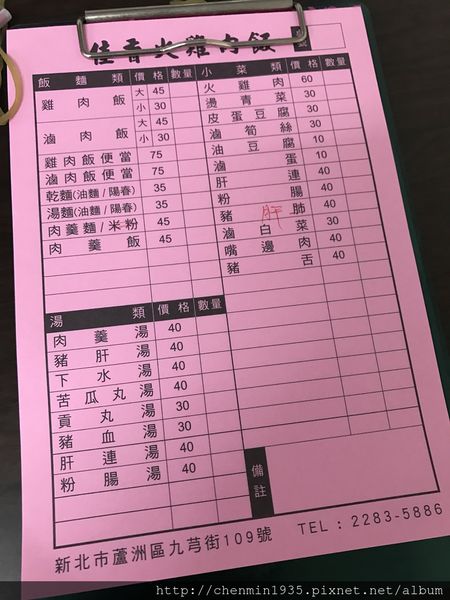 佳香火雞肉飯 號
飯麵類 價格 數量
雞肉飯 大 45
小 30
滷肉飯 大 45
小 30
雞肉飯便當 75
滷肉飯便當 75
乾麵(油麵/陽春) 35
湯麵(油麵/陽春) 35
肉羹麵/米粉 45
肉羹飯 45
湯類 價格 數量
肉羹湯 40
豬肝湯 40
下水湯 40
苦瓜丸湯 40
貢丸湯 30
豬血湯 30
肝連湯 40
粉腸湯 40
小菜類 價格 數量
火雞肉 60
燙青菜 30
皮蛋豆腐 30
滷筍絲 30
油豆腐 30
滷蛋 10
肝連 40
粉腸 40
豬肝肺 40
滷白菜 30
嘴邊肉 40
豬舌 40
備註
新北市蘆洲區九芎街109號 TEL:2283-5886
http://chenmin1935.pixnet.net/album